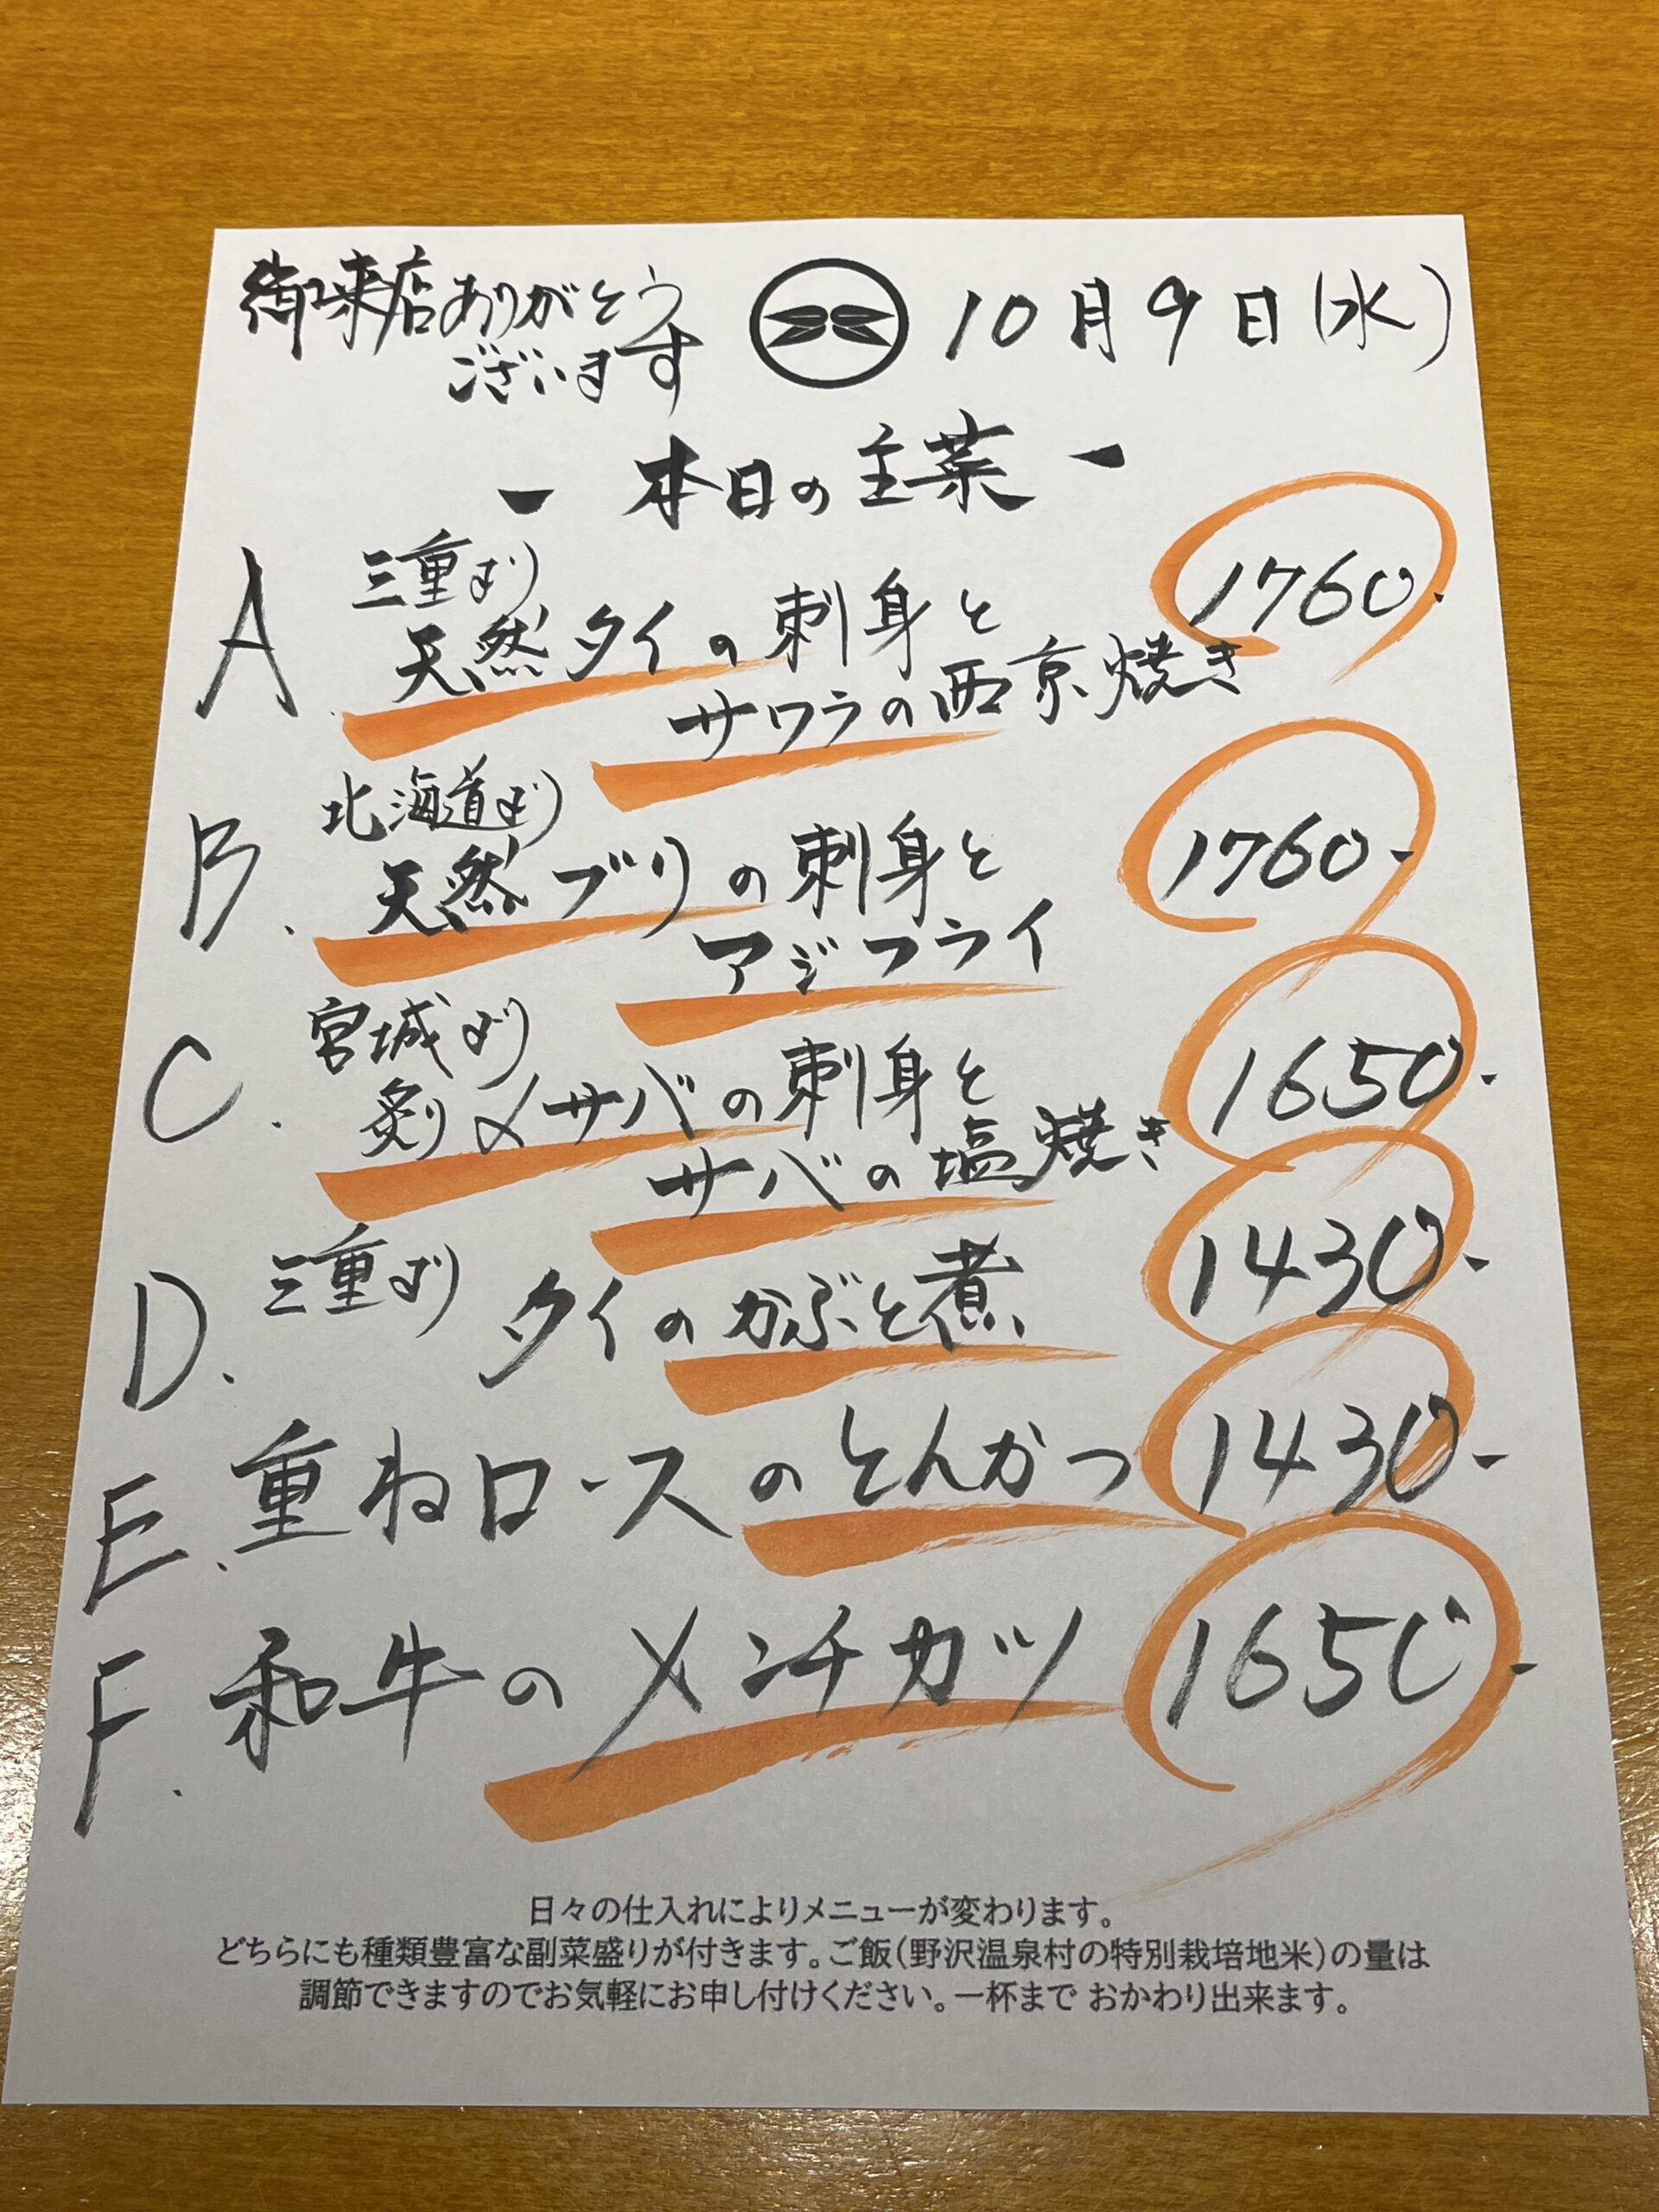 御来店ありがとう
ございます
10月9日(水)
- 本日の主菜 -
A. 三重より
天然タイの刺身と
サワラの西京焼き
1760.
B. 北海道より
天然ブリの刺身と
アジフライ
1760-
C. 宮城より
炙り〆サバの刺身と
サバの塩焼き
1650-
D. 三重より タイのかぶと煮 1430-
E. 重ねロースのとんかつ 1430-
F. 和牛のメンチカツ 1650-
日々の仕入れによりメニューが変わります。
どちらにも種類豊富な副菜盛りが付きます。ご飯(野沢温泉村の特別栽培地米)の量は
調節できますのでお気軽にお申し付けください。一杯まで おかわり出来ます。